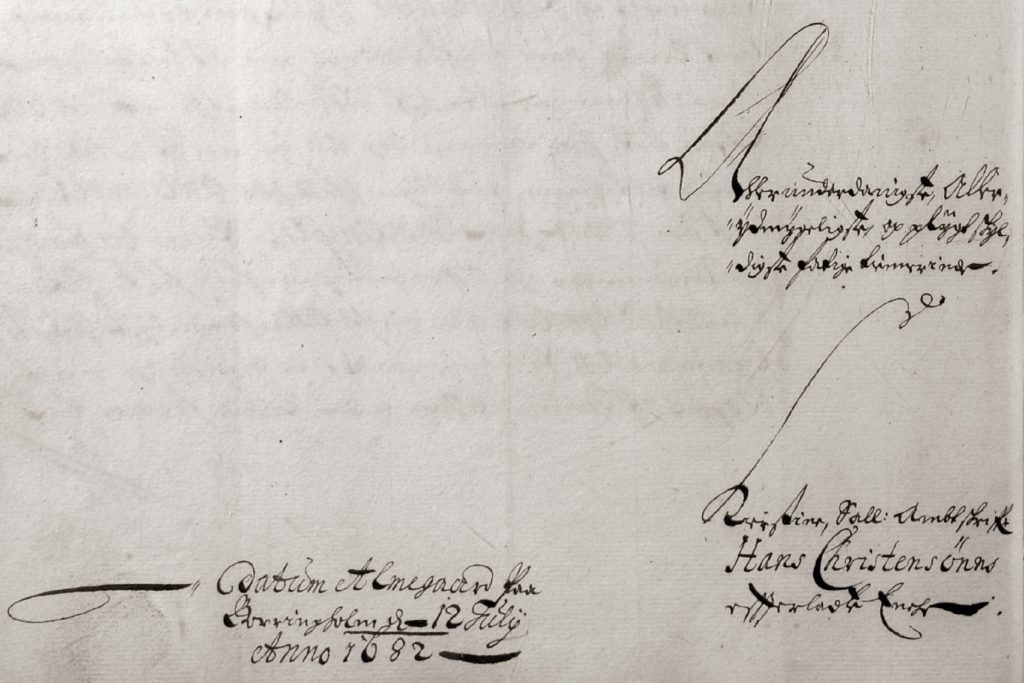 Allerunderdanigste, Aller-
ydmygeligste, og pligt schyl-
digste fattige
Kirstine, Sall: Ambtschrifr
Hans Christensønns
effterladte Encke
Datum Almegaard Paa
Borringholm d. 12 July
Anno 1682